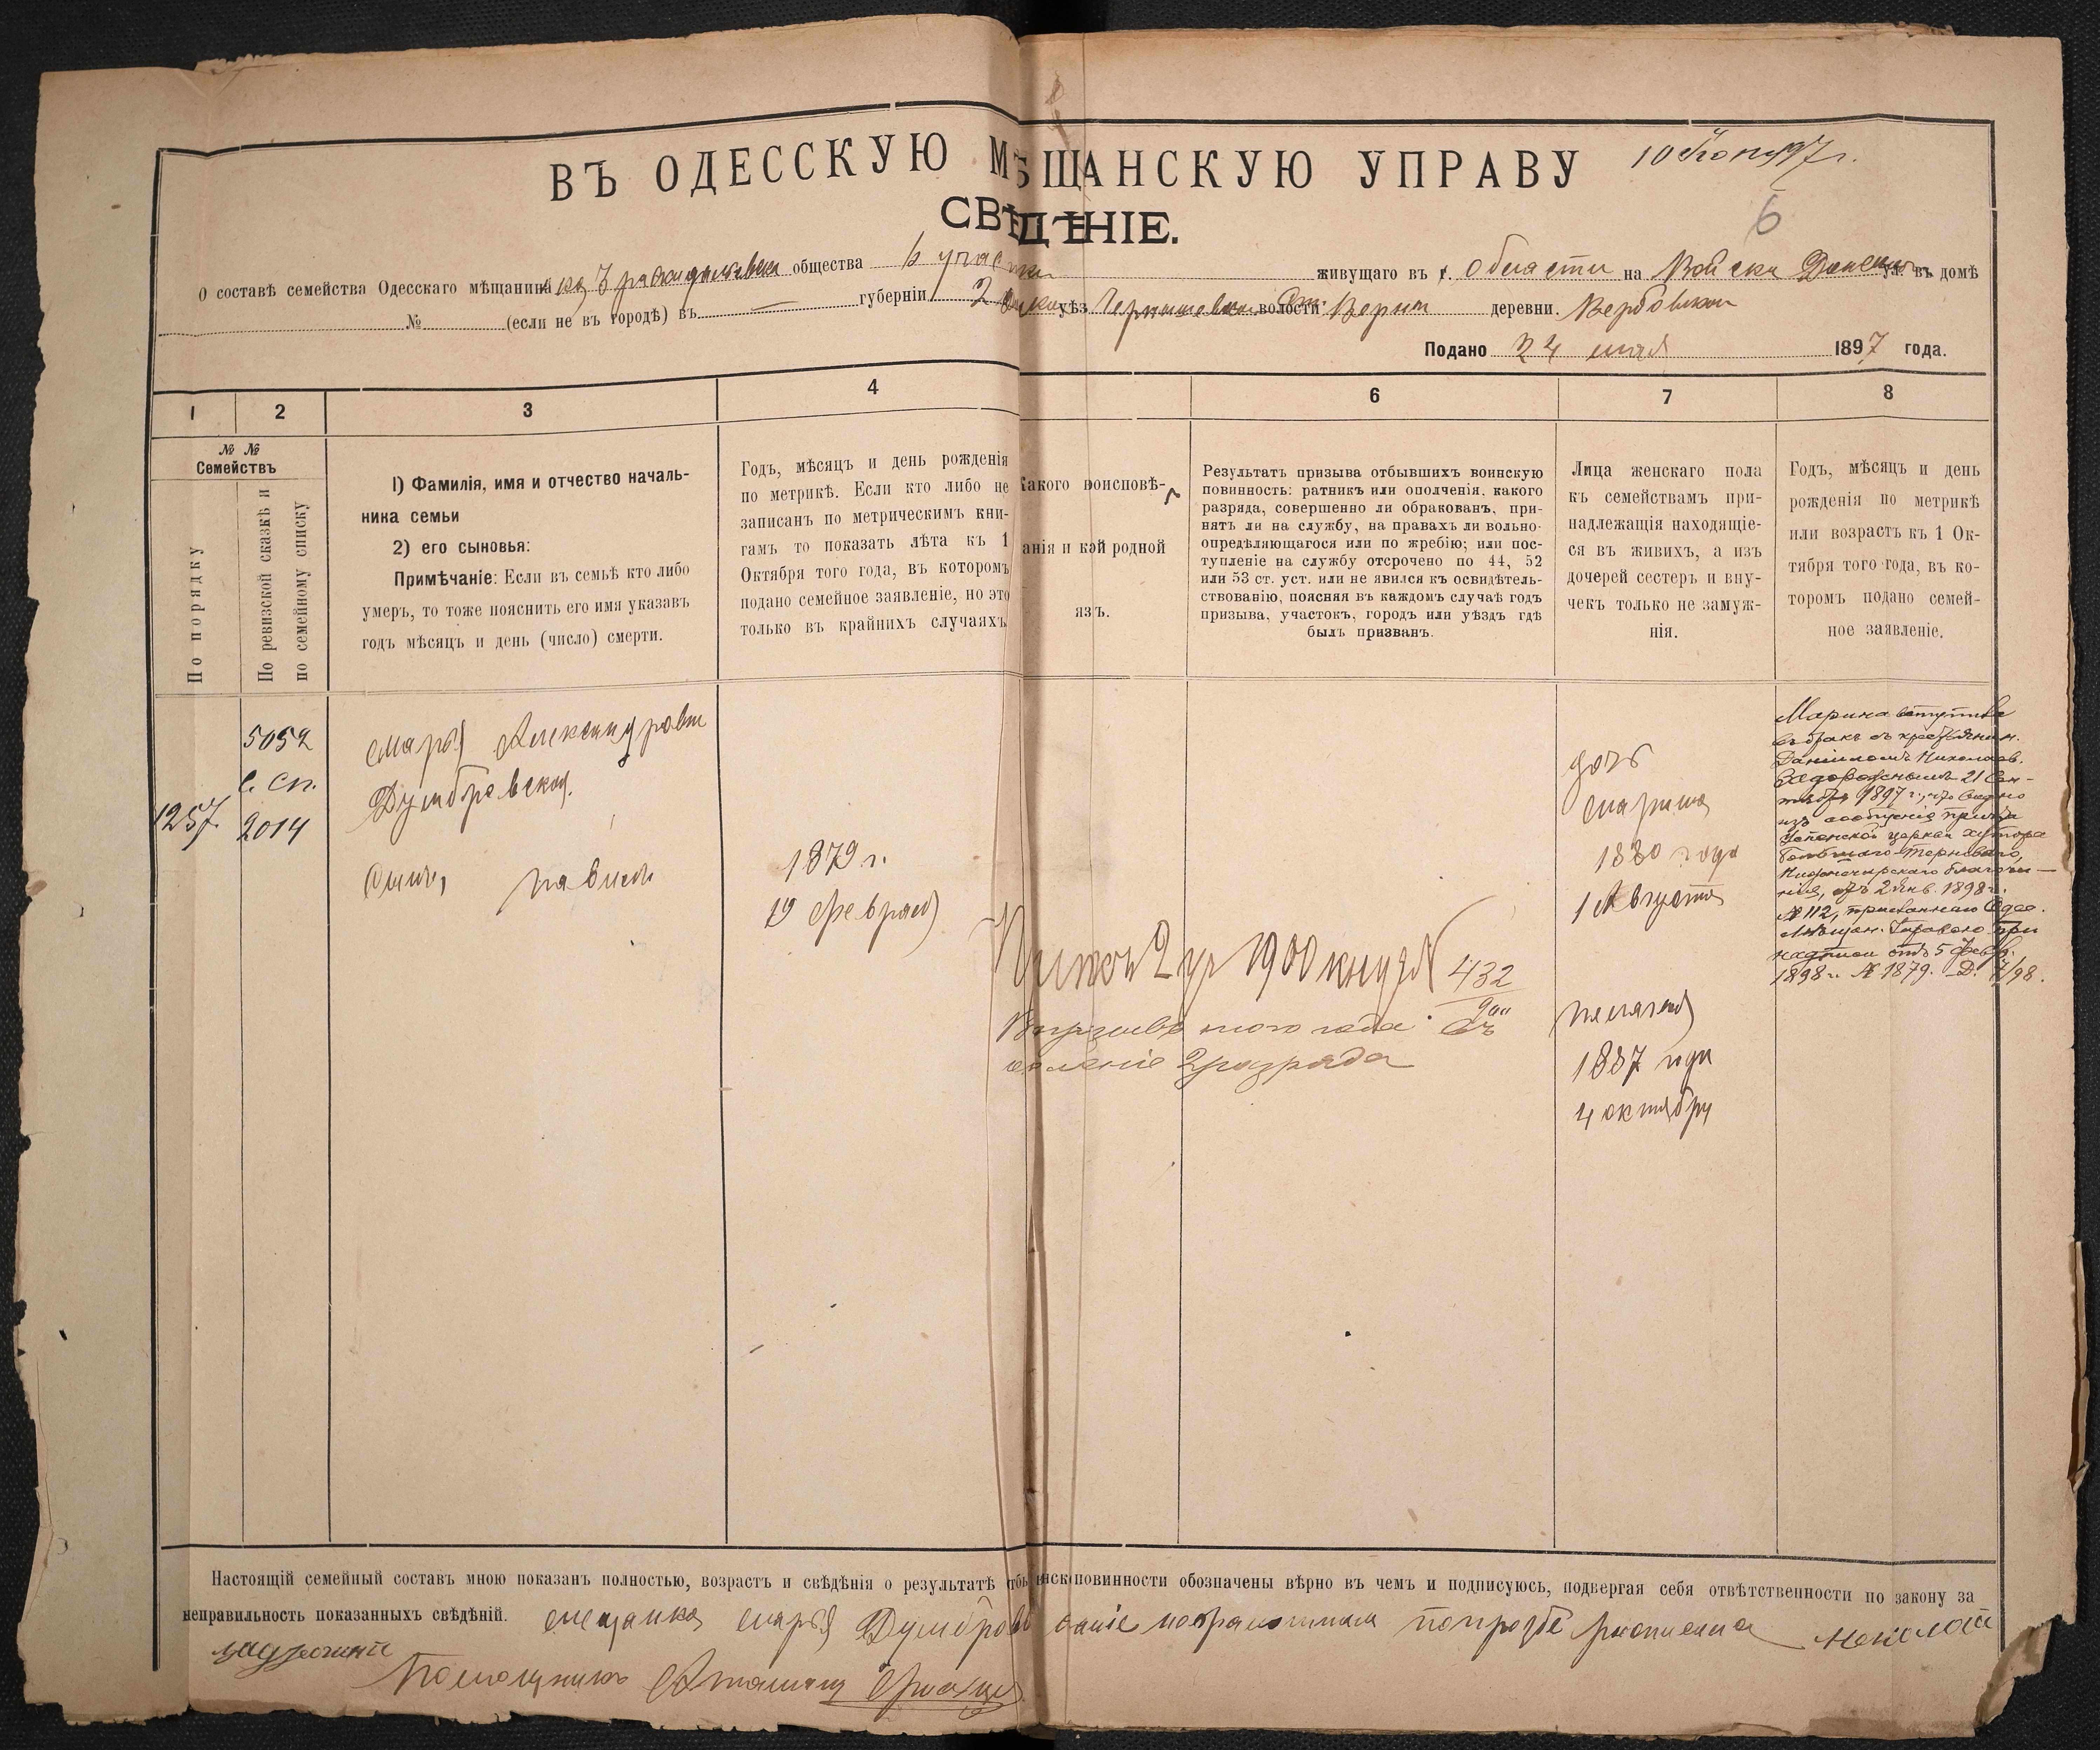 ВЪ ОДЕССКУЮ МѢЩАНСКУЮ УПРАВУ
СВѢДѢНІЕ.
6
О составѣ семейства Одесскаго мѣщанина общества живущаго въ г. области на Войска Донскаго въ домѣ
№ (если не въ городѣ) въ — губерніи 2 уѣз волости деревни. Вербовскои
Подано 24 мая 1897 года.
1 2 3 4 6 7 8
№ №
Семействъ
По порядку
По ревизской сказкѣ и
по семейному списку
1) Фамилія, имя и отчество началь-
ника семьи
2) его сыновья:
Примѣчаніе: Если въ семьѣ кто либо
умеръ, то тоже пояснить его имя указавъ
годъ мѣсяцъ и день (число) смерти.
Годъ, мѣсяцъ и день рожденія
по метрикѣ. Если кто либо не
записанъ по метрическимъ кни-
гамъ то показать лѣта къ 1
Октября того года, въ которомъ
подано семейное заявленіе, но это
только въ крайнихъ случаяхъ
Какого воисповѣ-
анія и кой родной
язъ.
Результатъ призыва отбывшихъ воинскую
повинность: ратникъ или ополченія. какого
разряда, совершенно ли обракованъ, при-
нятъ ли на службу, на правахъ ли вольно-
опредѣляющагося или по жребію; или пос-
тупленіе на службу отсрочено по 44, 52
или 53 ст. уст. или не явился къ освидѣтель-
ствованію, поясняя въ каждомъ случаѣ годъ
призыва, участокъ, городъ или уѣздъ гдѣ
былъ призванъ.
Лица женскаго пола
къ семействамъ при-
надлежащія находящіе-
ся въ живихъ, а изъ
дочерей сестеръ и вну-
чекъ только не замуж-
нія.
Годъ, мѣсяцъ и день
рожденія по метрикѣ
или возрастъ къ 1 Ок-
тября того года, въ ко-
торомъ подано семей-
ное заявленіе.
1257
5052
с. сп.
2014
Марья Александровн
Думбровская.
Сынъ, Павилъ
1879 г.
19 февраля
1900 432
900
2 разряда
дочь
Марина
1880 года
1 Августа
Пелагея
1887 года
4 октября
Марина вступила
въ бракъ съ крестьянин.
Данииломъ Николаев.
Задорожнымъ 21 Сен-
тября 1897 г., что видно
изъ сообщенія причта
Успенской церкви хутора
Большого-Терноваго,
Нижнечирскаго благочи-
нія, отъ 2 Янв. 1898 г.
№ 112, присланнаго Одес.
Мѣщан. Управою при
надписи отъ 5 Февр.
1898 г. № 1879.
Настоящій семейный составъ мною показанъ полностью, возрастъ и свѣдѣнія о результатѣ отбы воинск повинности обозначены вѣрно въ чемъ и подписуюсь, подвергая себя отвѣтственности по закону за
неправильность показанныхъ свѣдѣній. Мещанка Марья Думбровс
Помощникъ Атамана